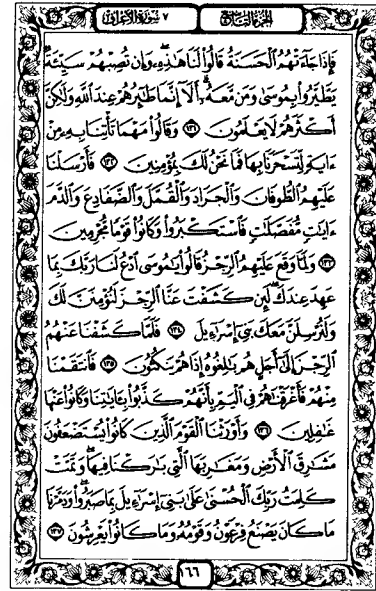 الجزء التاسع
٧ سورة الأعراف
فَإِذَا جَآءَتۡهُمُ ٱلۡحَسَنَةُ قَالُواْ لَنَا هَٰذِهِۦۖ وَإِن تُصِبۡهُمۡ سَيِّئَةٞ
يَطَّيَّرُواْ بِمُوسَىٰ وَمَن مَّعَهُۥٓۗ أَلَآ إِنَّمَا طَٰٓئِرُهُمۡ عِندَ ٱللَّهِ وَلَٰكِنَّ
أَكۡثَرَهُمۡ لَا يَعۡلَمُونَ ١٣١ وَقَالُواْ مَهۡمَا تَأۡتِنَا بِهِۦ مِنۡ
ءَايَةٖ لِّتَسۡحَرَنَا بِهَا فَمَا نَحۡنُ لَكَ بِمُؤۡمِنِينَ ١٣٢ فَأَرۡسَلۡنَا
عَلَيۡهِمُ ٱلطُّوفَانَ وَٱلۡجَرَادَ وَٱلۡقُمَّلَ وَٱلضَّفَادِعَ وَٱلدَّمَ
ءَايَٰتٖ مُّفَصَّلَٰتٖ فَٱسۡتَكۡبَرُواْ وَكَانُواْ قَوۡمٗا مُّجۡرِمِينَ
١٣٣ وَلَمَّا وَقَعَ عَلَيۡهِمُ ٱلرِّجۡزُ قَالُواْ يَٰمُوسَى ٱدۡعُ لَنَا رَبَّكَ بِمَا
عَهِدَ عِندَكَۖ لَئِن كَشَفۡتَ عَنَّا ٱلرِّجۡزَ لَنُؤۡمِنَنَّ لَكَ
وَلَنُرۡسِلَنَّ مَعَكَ بَنِيٓ إِسۡرَٰٓءِيلَ ١٣٤ فَلَمَّا كَشَفۡنَا عَنۡهُمُ
ٱلرِّجۡزَ إِلَىٰٓ أَجَلٍ هُم بَٰلِغُوهُ إِذَا هُمۡ يَنكُثُونَ ١٣٥ فَٱنتَقَمۡنَا
مِنۡهُمۡ فَأَغۡرَقۡنَٰهُمۡ فِي ٱلۡيَمِّ بِأَنَّهُمۡ كَذَّبُواْ بِـَٔايَٰتِنَا وَكَانُواْ عَنۡهَا
غَٰفِلِينَ ١٣٦ وَأَوۡرَثۡنَا ٱلۡقَوۡمَ ٱلَّذِينَ كَانُواْ يُسۡتَضۡعَفُونَ
مَشَٰرِقَ ٱلۡأَرۡضِ وَمَغَٰرِبَهَا ٱلَّتِي بَٰرَكۡنَا فِيهَاۖ وَتَمَّتۡ
كَلِمَتُ رَبِّكَ ٱلۡحُسۡنَىٰ عَلَىٰ بَنِيٓ إِسۡرَٰٓءِيلَ بِمَا صَبَرُواْۖ وَدَمَّرۡنَا
مَا كَانَ يَصۡنَعُ فِرۡعَوۡنُ وَقَوۡمُهُۥ وَمَا كَانُواْ يَعۡرِشُونَ ١٣٧
١٦٦